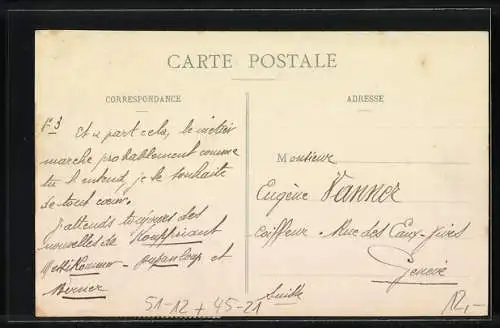 CARTE POSTALE
CORRESPONDANCE
ADRESSE
Et à part cela, le métier
marche probablement comme
tu l'entend, je le souhaite
de tout cœur.
J'attends toujours des
nouvelles de
et
Berner
Monsieur
Eugène Vanner
Coiffeur. Rue des Eaux-Vives
Genève
Suisse
51-12 + 45-21
12,-